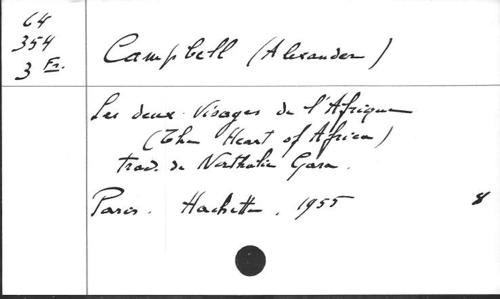 64
354
3 Fr.
Campbell (Alexander)
Les deux Visages de l'Afrique
(The Heart of Africa)
trad. de Nathalie Gara.
Paris. Hachette, 1955
8